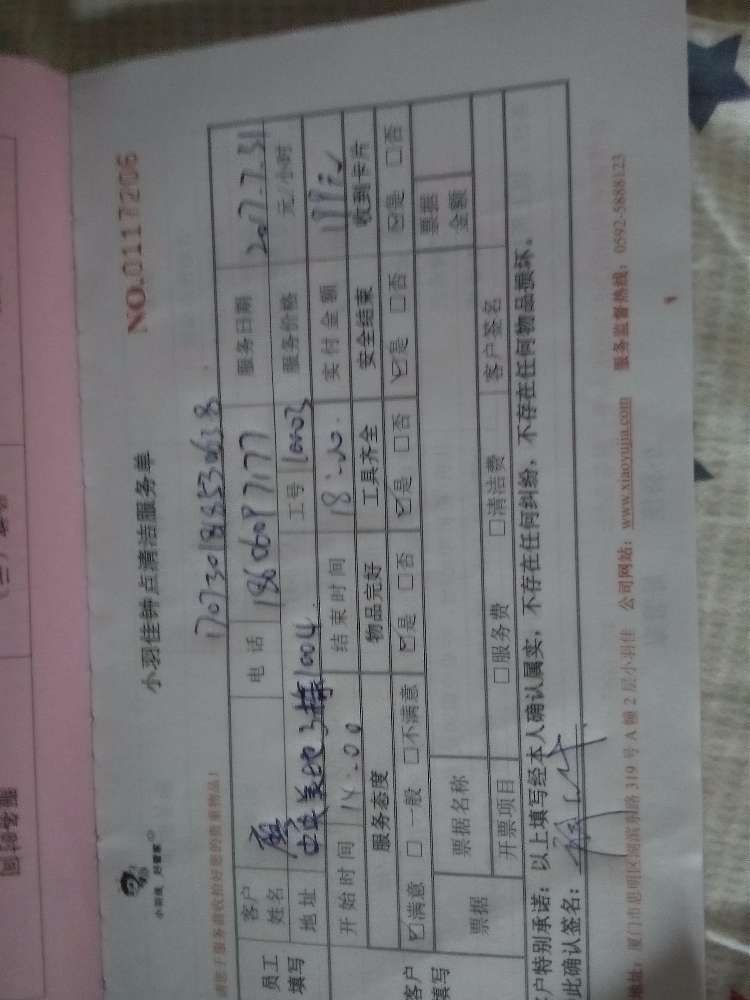 小羽佳 好管家
小羽佳钟点清洁服务单
NO.0117206
请您于服务前收拾好您的贵重物品！
员工填写
客户姓名
电话 18606097177
服务日期 2017.7.31
地址 中央美地3栋1004
工号
服务价格 元/小时
开始时间 14:00
结束时间 18:00
实付金额
服务态度 物品完好 工具齐全 安全结束 收到卡片
客户填写
☑满意 □一般 □不满意 ☑是 □否 ☑是 □否 ☑是 □否 ☑是 □否
票据
票据名称
票据金额
开票项目 □服务费 □清洁费 客户签名
户特别承诺：以上填写经本人确认属实，不存在任何纠纷，不存在任何物品损坏。
此确认签名：
地址：厦门市思明区湖滨南路319号A幢2层小羽佳 公司网站：www.xiaoyujia.com 服务监督热线：0592-5888123